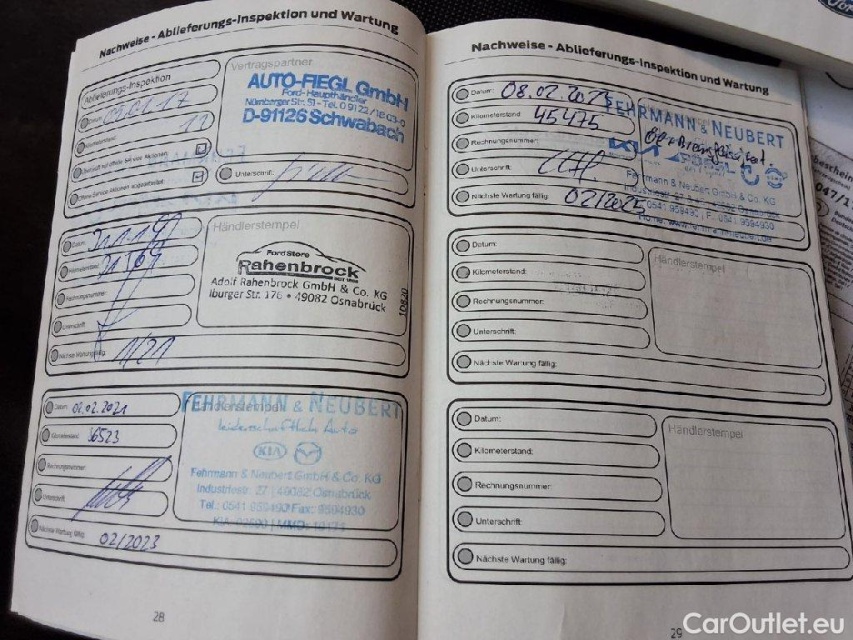 Nachweise - Ablieferungs-Inspektion und Wartung
Ablieferungs-Inspektion
Vertragspartner
AUTO-FIEGL GmbH
Ford-Haupthändler
Nürnberger Str. 51 - Tel. 0 91 22 / 18 03-0
D-91126 Schwabach
Unterschrift:
Händlerstempel
Ford Store
Rahenbrock
Adolf Rahenbrock GmbH & Co. KG
Iburger Str. 176 • 49082 Osnabrück
Datum:
Kilometerstand:
Rechnungsnummer:
Unterschrift:
Nächste Wartung fällig: 11/21
Händlerstempel
FEHRMANN & NEUBERT
leidenschaftlich Auto
KIA
Fehrmann & Neubert GmbH & Co. KG
Industriestr. 27 | 49082 Osnabrück
Tel.: 0541 959490 Fax: 9594930
Datum: 02.02.2021
Kilometerstand: 36523
Rechnungsnummer:
Unterschrift:
Nächste Wartung fällig: 02/2023
28
Nachweise - Ablieferungs-Inspektion und Wartung
Datum: 08.02.2023
Kilometerstand: 45475
Rechnungsnummer:
Unterschrift:
Nächste Wartung fällig: 02/2025
FEHRMANN & NEUBERT
Fehrmann & Neubert GmbH & Co. KG
Datum:
Kilometerstand:
Rechnungsnummer:
Unterschrift:
Nächste Wartung fällig:
Händlerstempel
Datum:
Kilometerstand:
Rechnungsnummer:
Unterschrift:
Nächste Wartung fällig:
Händlerstempel
29
CarOutlet.eu